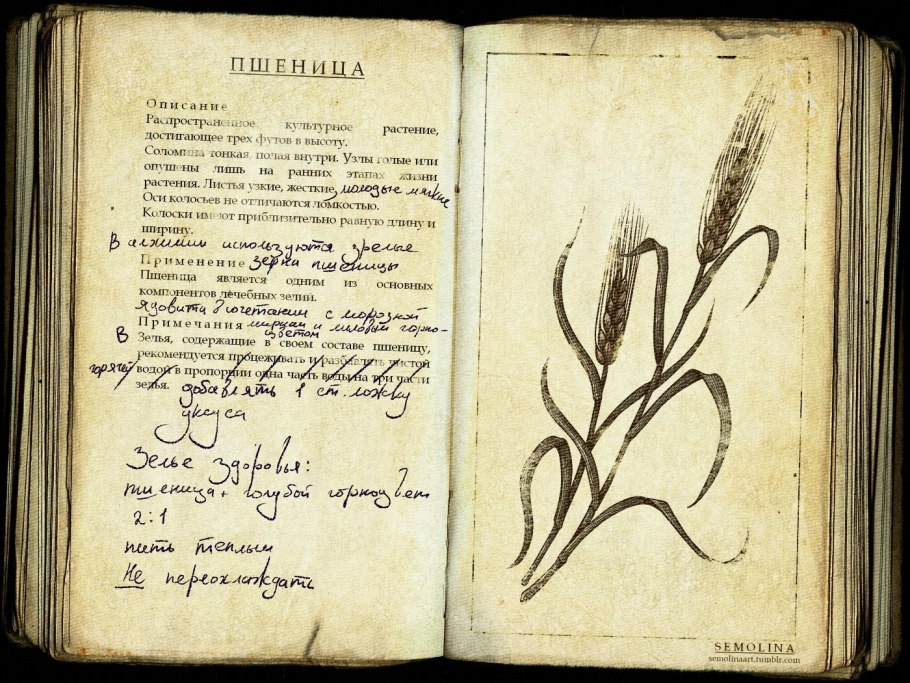 ПШЕНИЦА
Описание
Распространенное культурное растение,
достигающее трех футов в высоту.
Соломина тонкая, полая внутри. Узлы голые или
опушены лишь на ранних этапах жизни
растения. Листья узкие, жесткие, молодые мягкие
Оси колосьев не отличаются ломкостью.
Колоски имеют приблизительно равную длину и
ширину.
В алхимии используются зрелые
Применение зерна пшеницы
Пшеница является одним из основных
компонентов лечебных зелий.
ядовита в сочетании с морозной
Примечания мирцан и лиловый горно-
цветом
В Зелья, содержащие в своем составе пшеницу,
рекомендуется процеживать и разбавлять чистой
горячей водой в пропорции одна часть воды на три части
зелья. добавлять 1 ст. ложку
уксуса
Зелье здоровья:
пшеница + голубой горноцвет
2:1
пить теплым
Не переохлаждать
SEMOLINA
semolinaart.tumblr.com